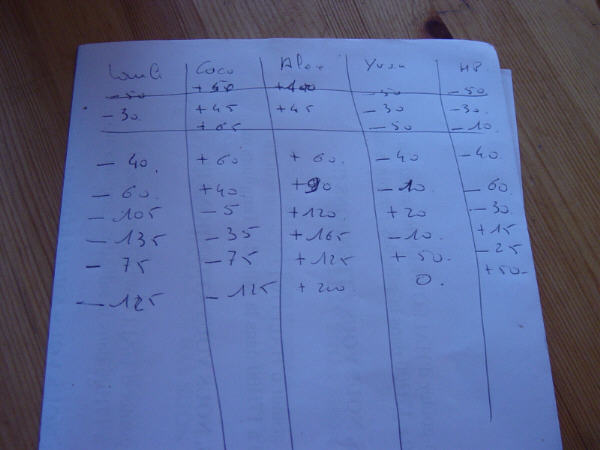 Coco Alex Yvan HP
-50 +50 +100 -50 -50
-30. +45 +45 -30 -30.
+65 -50 -10.
- 40. + 60 + 60. -40 -40.
- 60. +40 +90 -10. - 60.
- 105 - 5 +120 +20 - 30.
- 135 - 35 +165 -10. +15
- 75 - 75 +125 + 50. -25
- 125 - 125 +200 0. +50